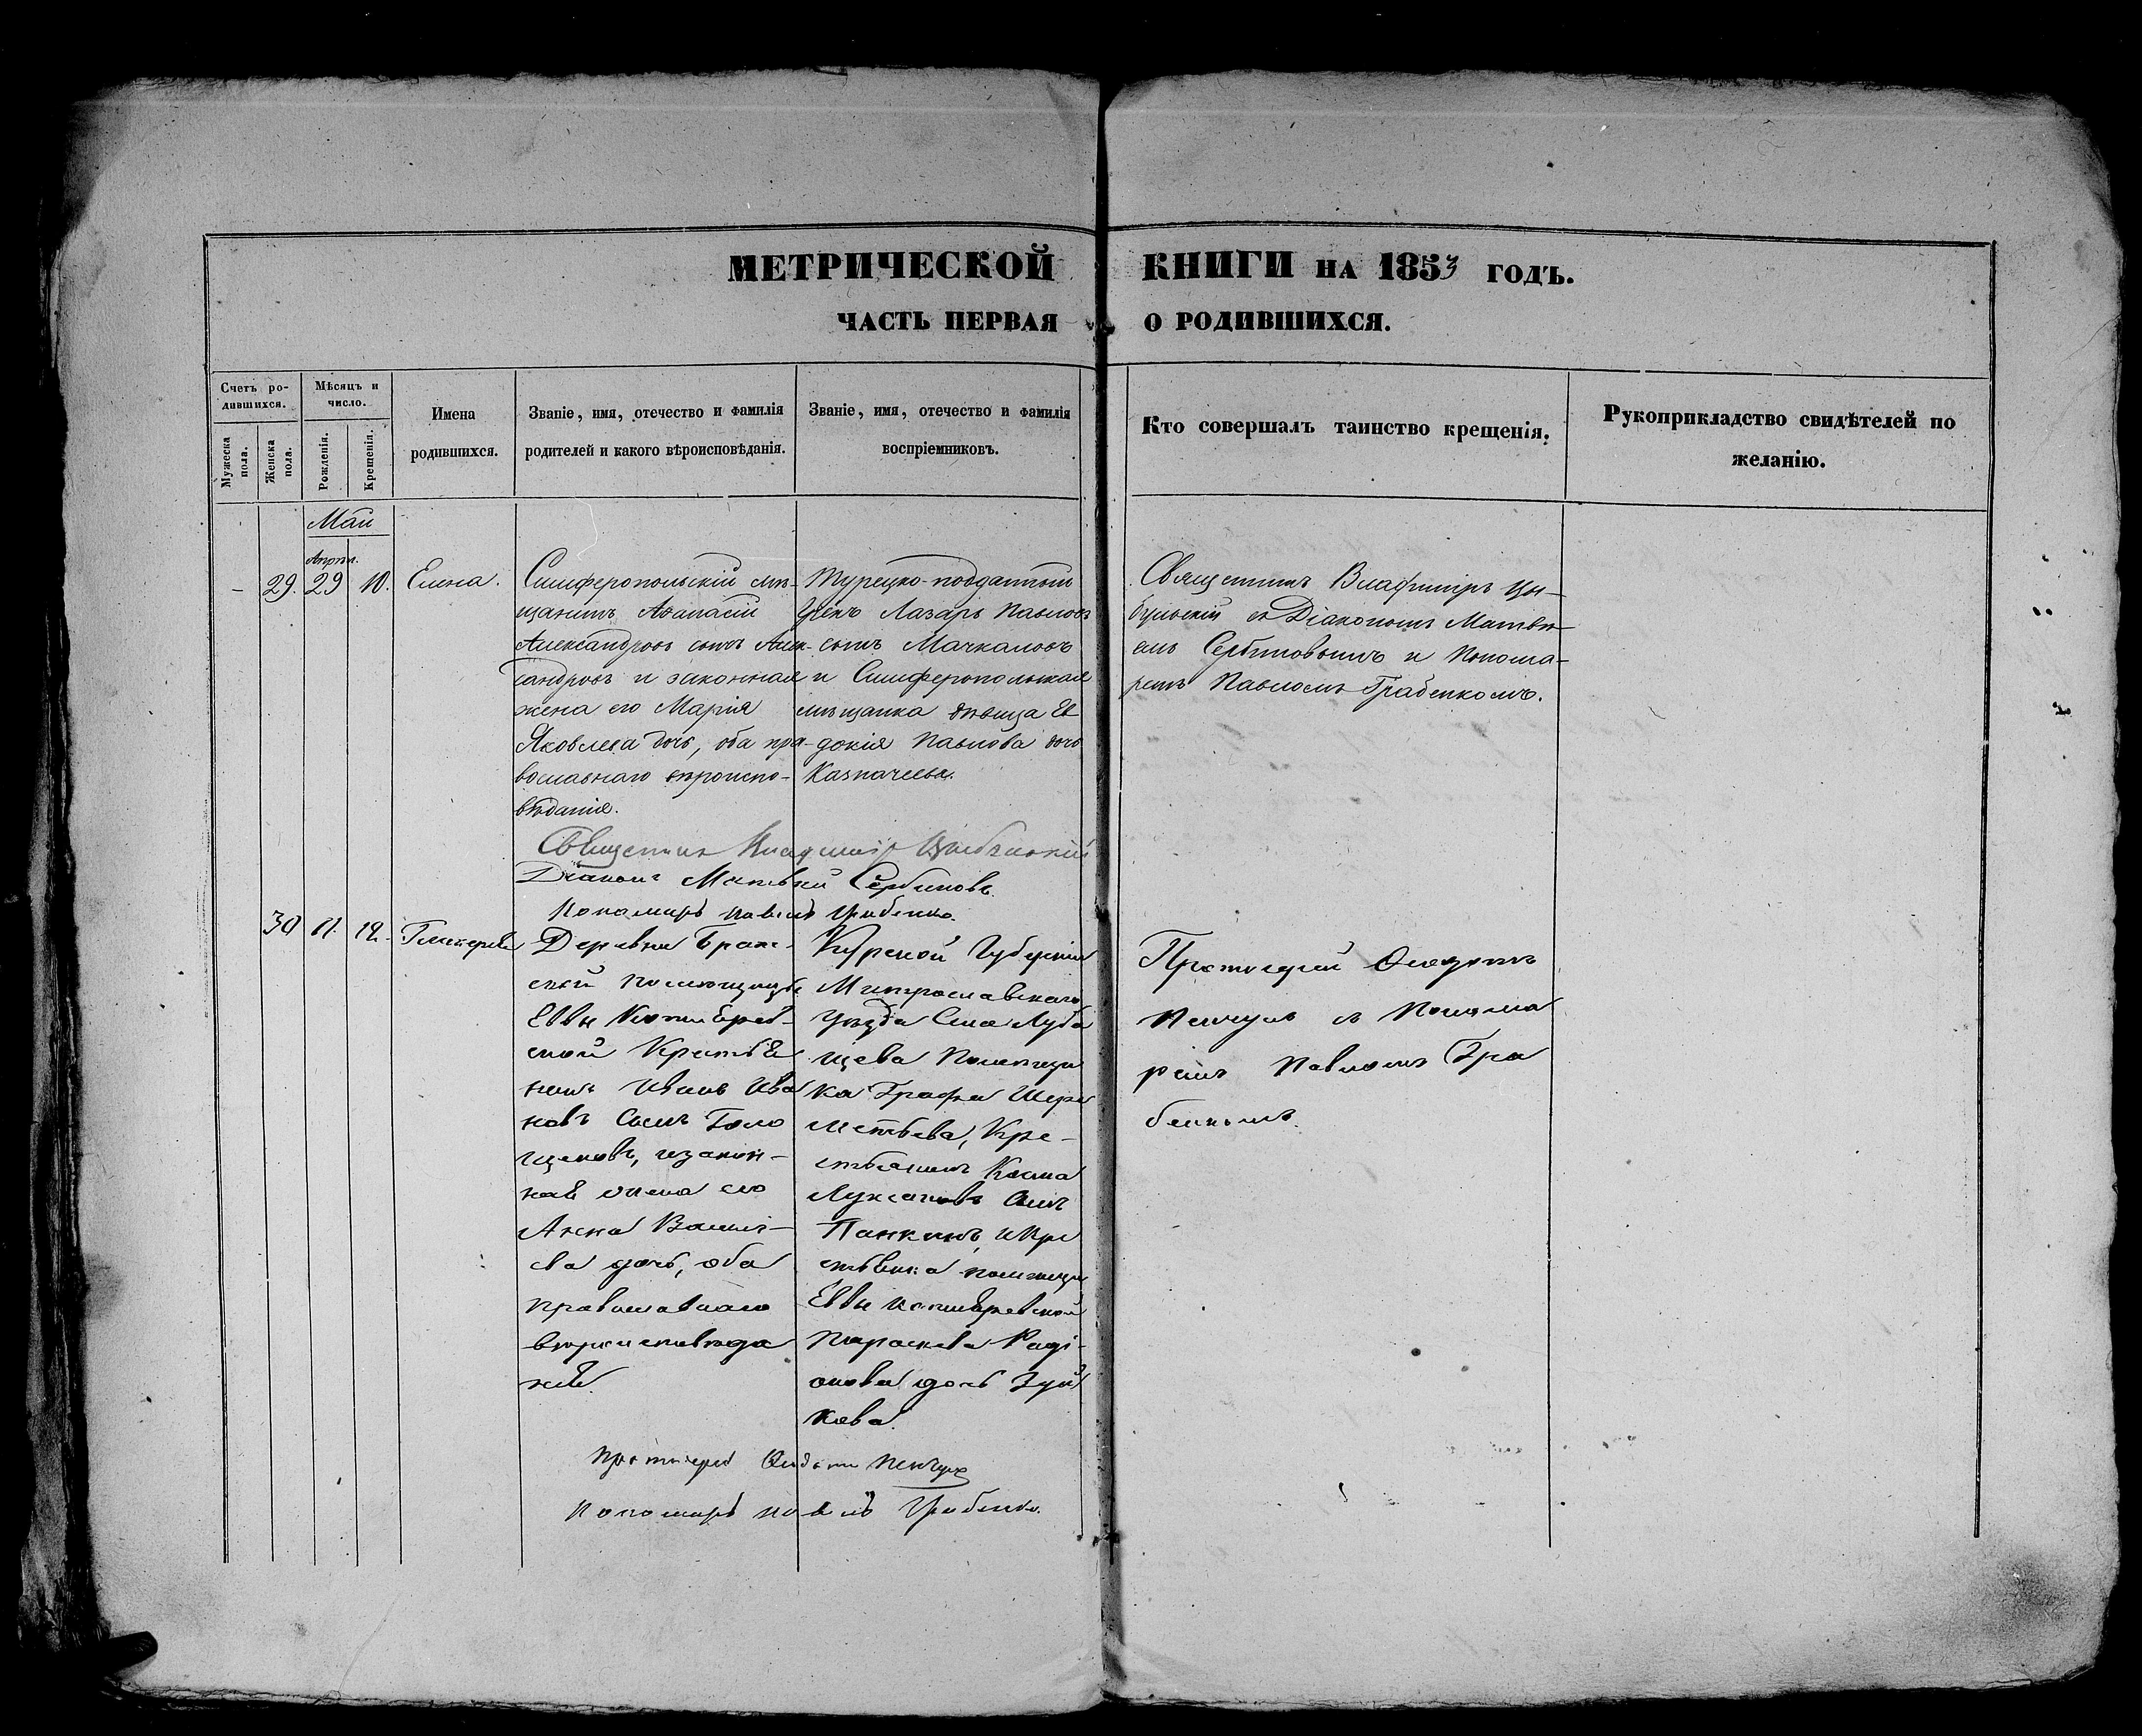 МЕТРИЧЕСКОЙ КНИГИ НА 1853 ГОДЪ.
ЧАСТЬ ПЕРВАЯ О РОДИВШИХСЯ.
Счетъ ро-
дившихся.
Мужеска пола.
Женска пола.
Мѣсяцъ и
число.
Рожденія.
Крещенія.
Имена
родившихся.
Званіе, имя, отечество и фамилія
родителей и какого вѣроисповѣданія.
Званіе, имя, отечество и фамилія
воспріемниковъ.
Кто совершалъ таинство крещенія.
Рукоприкладство свидѣтелей по
желанію.
Май
Апрѣл.
29. 29 10. Елена.
Симферопольскій мѣ-
щанинъ Аѳанасій
Александровъ сынъ Алек-
сандровъ и законная
жена его Марія
Яковлева дочь, оба пра-
вославнаго вѣроиспо-
вѣданія.
Турецко-подданный
Грекъ Лазарь Павловъ
сынъ Мачкаловъ
и Симферопольская
мѣщанка дѣвица Ев
докія Павлова дочь
Казначеева.
Священникъ Владиміръ Цы-
бульскій съ Діакономъ Матвѣ-
емъ Сербиновымъ и Понома-
ремъ Павломъ Грабенкомъ.
Священникъ Владиміръ Цыбульскій
Діаконъ Матвѣй Сербиновъ
Пономарь Павелъ Грабенко.
30 11. 12. Гликерія
Деревни
помѣщицы
Еввы
Крестья
нинъ Иванъ Ива
новъ Сынъ Голо
щаповъ, и закон-
ная жена его
Анна
ева дочь, оба
православнаго
вѣроисповѣда
нія.
Курской Губерніи
Уѣзда Села Луба
щева Помѣщи
ка Графа Шере
метьева, Кре-
стьянинъ Косма
Сынъ
Панкинъ, и Кре
стьянка помѣщи
Еввы
Параскева Радi-
онова дочь Зуй
кова.
Протоіерей
съ Понома
ремъ Павломъ Гра
бенкомъ.
Протоіерей
Пономарь Павелъ Грабенко.